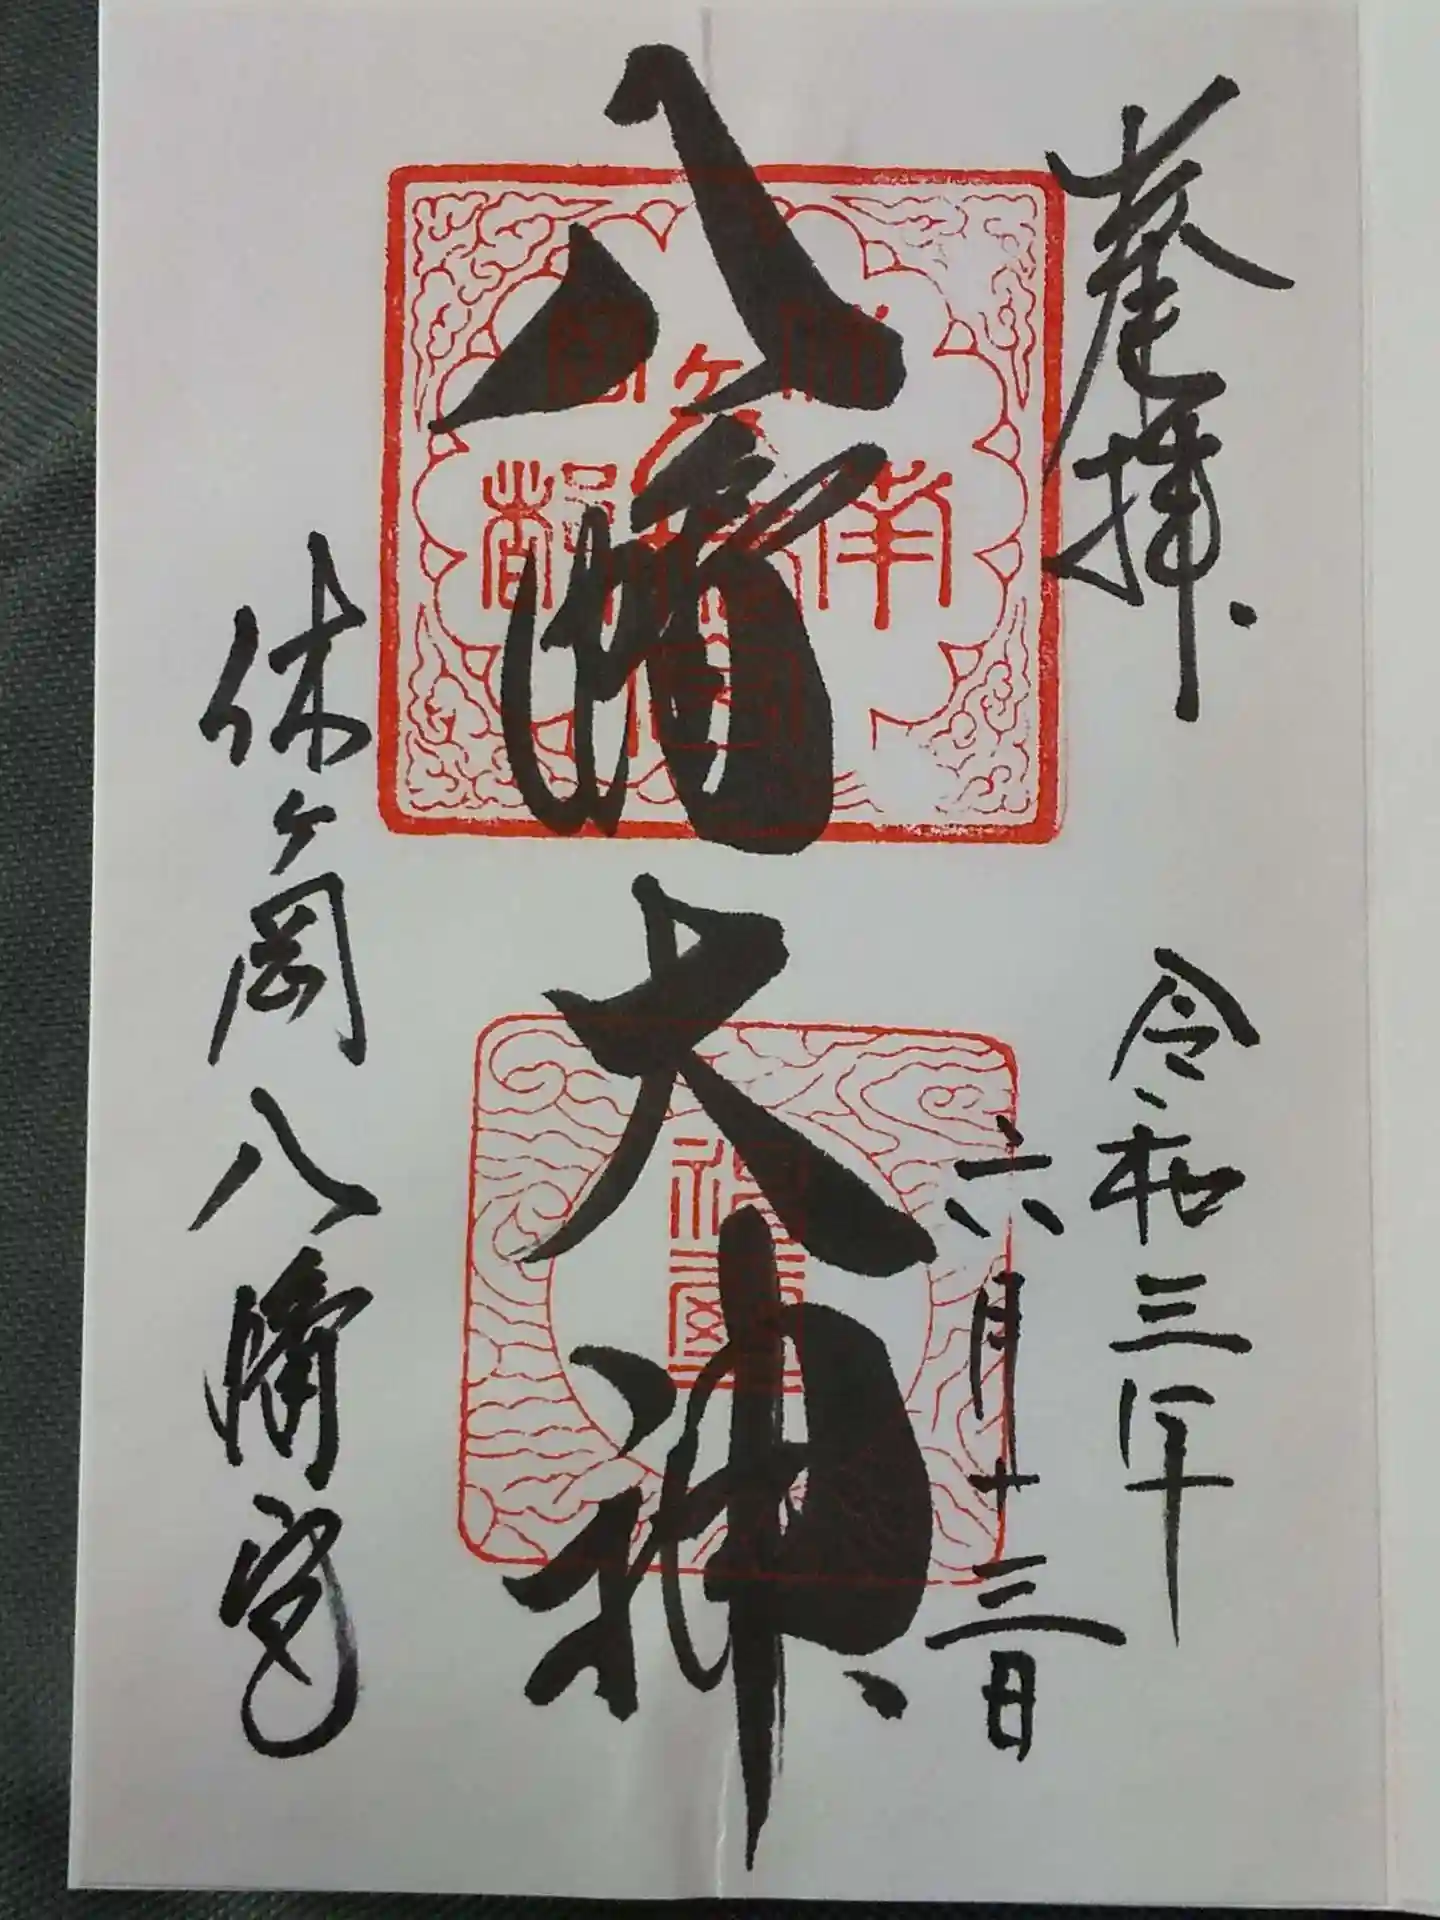 奉拝
令和三年
六月十三日
八幡大神
南都
休ヶ岡八幡宮